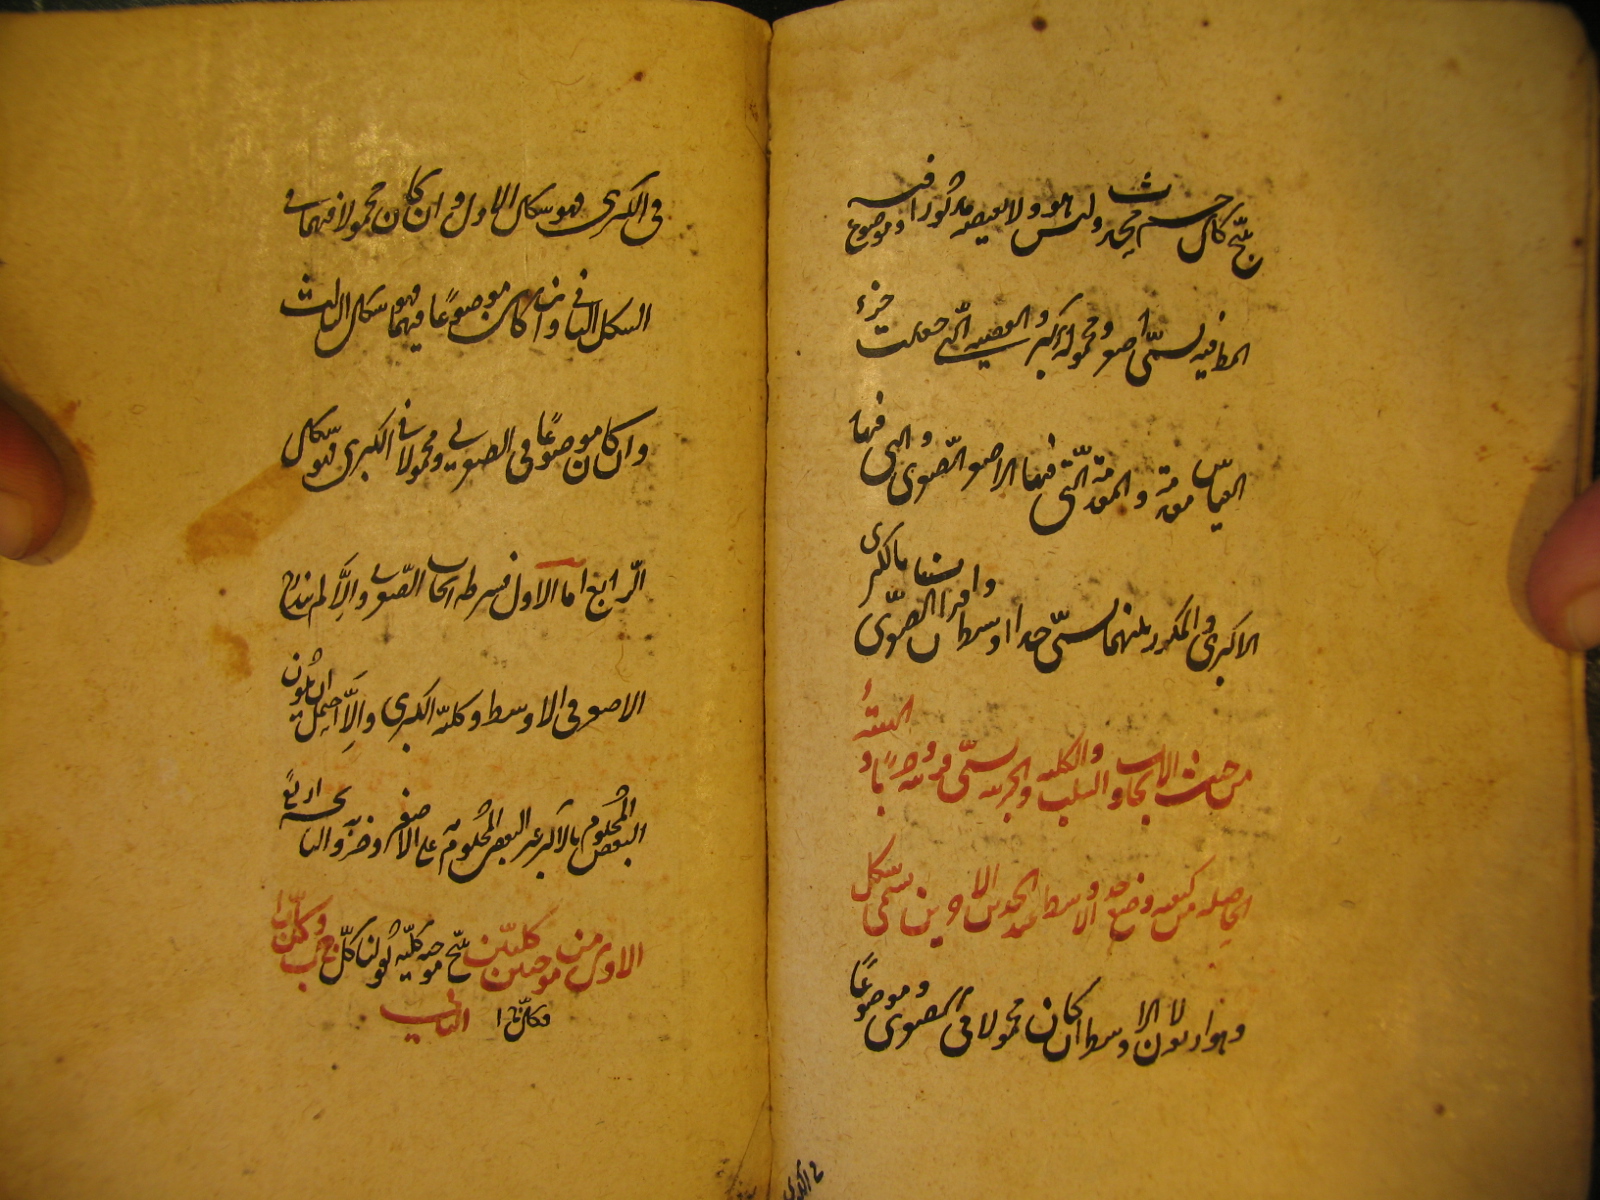 ينتج كل جسم محدث وليس هو ولا نقيضه مذكورا فيه وموضوع
المط فيه يسمّى اصغر ومحموله اكبر والقضية الّتى جعلت جزء
القياس مقدمة والمقدمة الّتى فيها الاصغر الصّغرى والتى فيها
الاكبر الكبرى والمكرر بينهما يسمّى حدا اوسط واقتران الصّغرى بالكبرى
من حيث الايجاب والسلب والكلية والجزئية يسمّى قرينة وضربًا والهيئة
الحاصلة من كيفية وضع حد الاوسط عند الحدين الاخرين يسمى شكل
وهو اربعة لان الاوسط ان كان محمولا فى الصغرى وموضوعًا
فى الكبرى فهو شكل الاول وان كان محمولا فيهما فهو
الشكل الثانى وان كان موضوعًا فيهما فهو شكل الثالث
وان كان موضوعًا فى الصغرى ومحمولا فى الكبرى فهو شكل
الرّابع اما الاول فشرطه ايجاب الصّغرى والّا لم يندرج
الاصغر فى الاوسط وكلية الكبرى والّا احتمل ان يكون
البعض المحكوم بالاكبر غير البعض المحكوم به على الاصغر وضروبه الناتجة اربعة
الاول من موجبتين كليتين ينتج موجبة كليّة كقولنا كلّ ج ب وكل ب ا
فكل ج ا الثانى